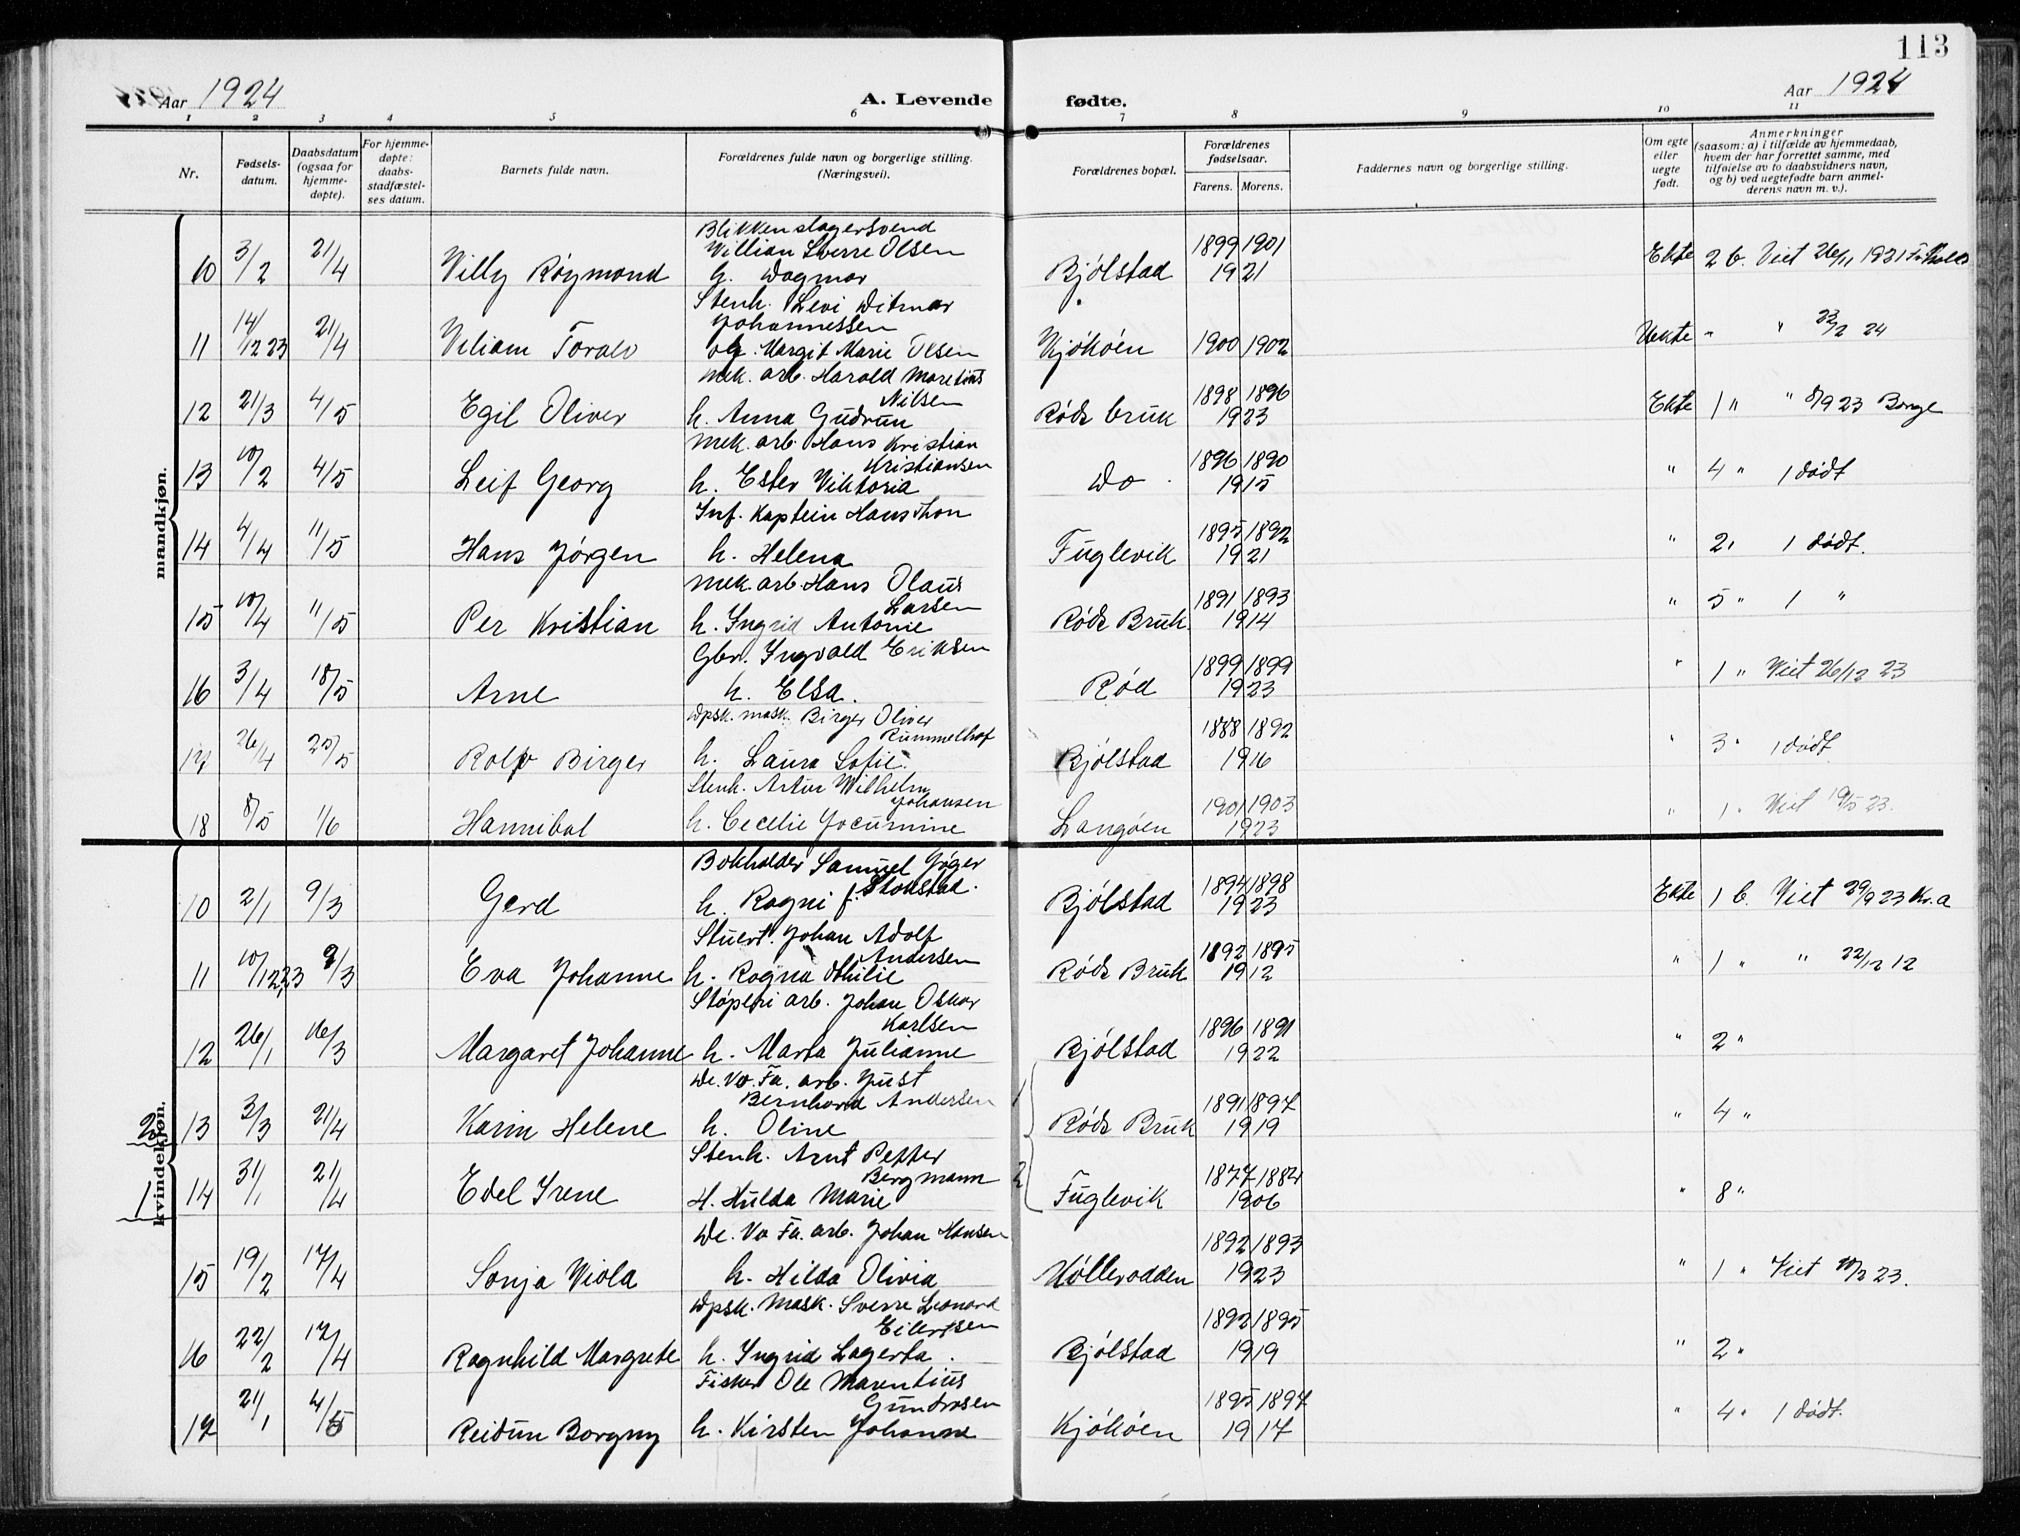 113
Aar 1924
A. Levende fødte.
Aar 1924
1 2 3 4 5 6 7 8 9 10 11
Nr.
Fødsels-
datum.
Daabsdatum
(ogsaa for
hjemme-
døpte).
For hjemme-
døpte:
daabs-
stadfæstel-
ses datum.
Barnets fulde navn.
Forældrenes fulde navn og borgerlige stilling.
(Næringsvei).
Forældrenes bopæl.
Forældrenes
fødselsaar.
Farens. Morens.
Faddernes navn og borgerlige stilling.
Om egte
eller
uegte
født.
Anmerkninger
(saasom: a) i tilfælde av hjemmedaab,
hvem der har forrettet samme, med
tilføielse av to daabsvidners navn,
og b) ved uegtefødte barn anmel-
derens navn m. v.).
mandkjøn.
Blikkenslagersvend
Willian Sverre Olsen 1899 1901
10 3/2 21/4 Willy Røymond h. Dagmar Bjølstad 1921 Ekte 2 b. Viet 26/11 1921
Stenh. Levi Ditmar
Johannessen
11 14/12 23 21/4 Viliam Toralv og Margit Marie Olsen Kjøkøen 1900 1902 Uekte " " 22/2 24
Mek. arb. Harald Maretius
Nilsen 1898 1896
12 21/3 4/5 Egil Oliver h. Anna Gudrun Røds bruk 1923 Ekte 1 " " 8/9 23 Borge
Mek. arb. Hans Kristian
Kristiansen 1896 1890
13 10/2 4/5 Leif Georg h. Ester Viktoria Do 1915 " 4 " 1 dødt
Inf. Kaptein Hans Thon 1895 1892
14 4/4 11/5 Hans Jørgen h. Helena Fuglevik 1921 " 2 " 1 dødt.
Mek. arb. Hans Olaus
Larsen 1891 1893
15 10/4 11/5 Per Kristian h. Ingrid Antonie Røds Bruk. 1914 " 5 " 1 "
Gbr. Ingvald Eriksen 1899 1899
16 3/4 18/5 Arne h. Elsa. Rød 1923 " 1 " Viet 26/12 23
Dpsk. mask. Birger Oliver
Rummelhof 1888 1892
17 26/4 25/5 Rolf Birger h. Laura Sofie. Bjølstad 1916 " 3 " 1 dødt.
Stenh. Artur Wilhelm
Johansen 1901 1903
18 8/5 1/6 Hannibal h. Cecelie Jocumine Langøen 1923 " 1 " Viet 19/5 23.
kvindekjøn.
Bokholder Samuel Jøger
Stokstad. 1894 1898
10 2/1 9/3 Gerd h. Ragni f. Bjølstad 1923 Ekte 1 b. Viet 29/9 23 Kr.a
Stuert. Johan Adolf
Andersen 1892 1895
11 10/12 23 9/3 Eva Johanne h. Ragna Othilie Røds Bruk 1912 " 1 " " 22/12 12
Støperi arb. Johan Oskar
Karlsen 1896 1891
12 26/1 16/3 Margaret Johanne h. Marta Julianne Bjølstad 1922 " 2 "
De. No. Fa. arb. Just
Bernhard Andersen 1 1891 1897
2 13 3/3 21/4 Karin Helene h. Oline Røds Bruk 1919 " 4 "
Stenh. Arnt Petter
Bergmann 2 1877 1884
1 14 31/1 21/4 Edel Irene H. Hulda Marie Fuglevik 1906 " 8 "
De. No Fa. arb. Johan Hansen 1892 1893
15 19/2 17/4 Sonja Viola h. Hilda Olivia Møllerodden 1923 " 1 " Viet 10/2 23.
Dpsk. Mask. Sverre Leonard
Eilertsen 1892 1895
16 22/2 17/4 Ragnhild Margrete h. Ingrid Lagerta. Bjølstad 1919 " 2 "
Fisker Ole Marentius
Gundrosen 1895 1897
17 21/1 4/5 Reidun Borgny h. Kirsten Johanne Kjøkøen 1917 " 4 " 1 dødt.